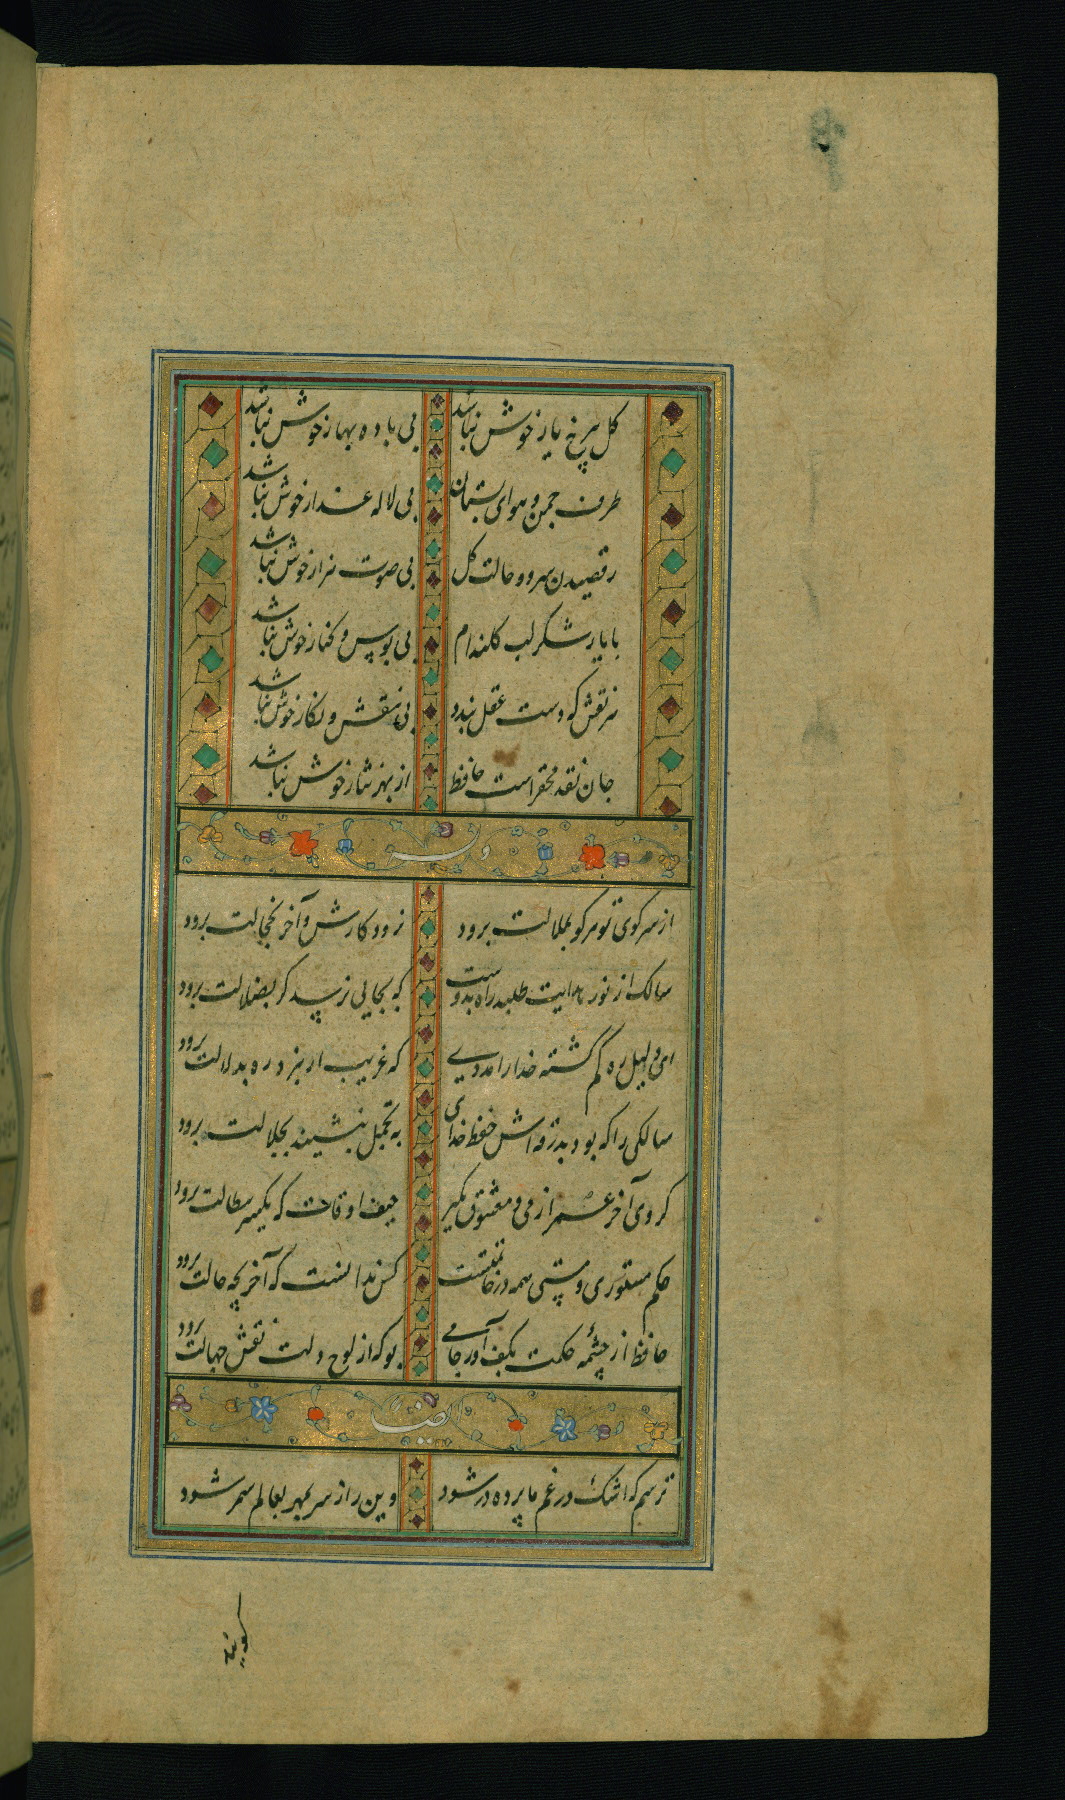 گل بی رخ یار خوش نباشد بی باده بهار خوش نباشد
طرف چمن و هوای بستان بی لاله عذار خوش نباشد
رقصیدن سرو و حالت گل بی صوت هزار خوش نباشد
با یار شکر لب گلندام بی بوس و کنار خوش نباشد
هر نقش که دست عقل بندد بی نقش و نگار خوش نباشد
جان نقد محقر است حافظ از بهر نثار خوش نباشد
وله
از سر کوی تو هر کو بملالت برود نرود کارش و آخر بخجالت برود
سالک از نور هدایت طلبد راه بدوست که بجایی نرسد گر بضلالت برود
ای دلیل ره گم گشته خدا را مددی که غریب ار نبرد ره بدلالت برود
سالکی را که بود بدرقه اش حفظ خدای به تجمل بنشیند بجلالت برود
گروی آخر عمر از می و معشوق بگیر حیف اوقات که یکسر ببطالت برود
حکم مستوری و مستی همه در خاتمتست کس ندانست که آخر بچه حالت برود
حافظ از چشمه حکمت بکف آور جامی بو که از لوح دلت نقش جهالت برود
ایضا
ترسم که اشک در غم ما پرده در شود وین راز سر بمهر بعالم سمر شود
گویند